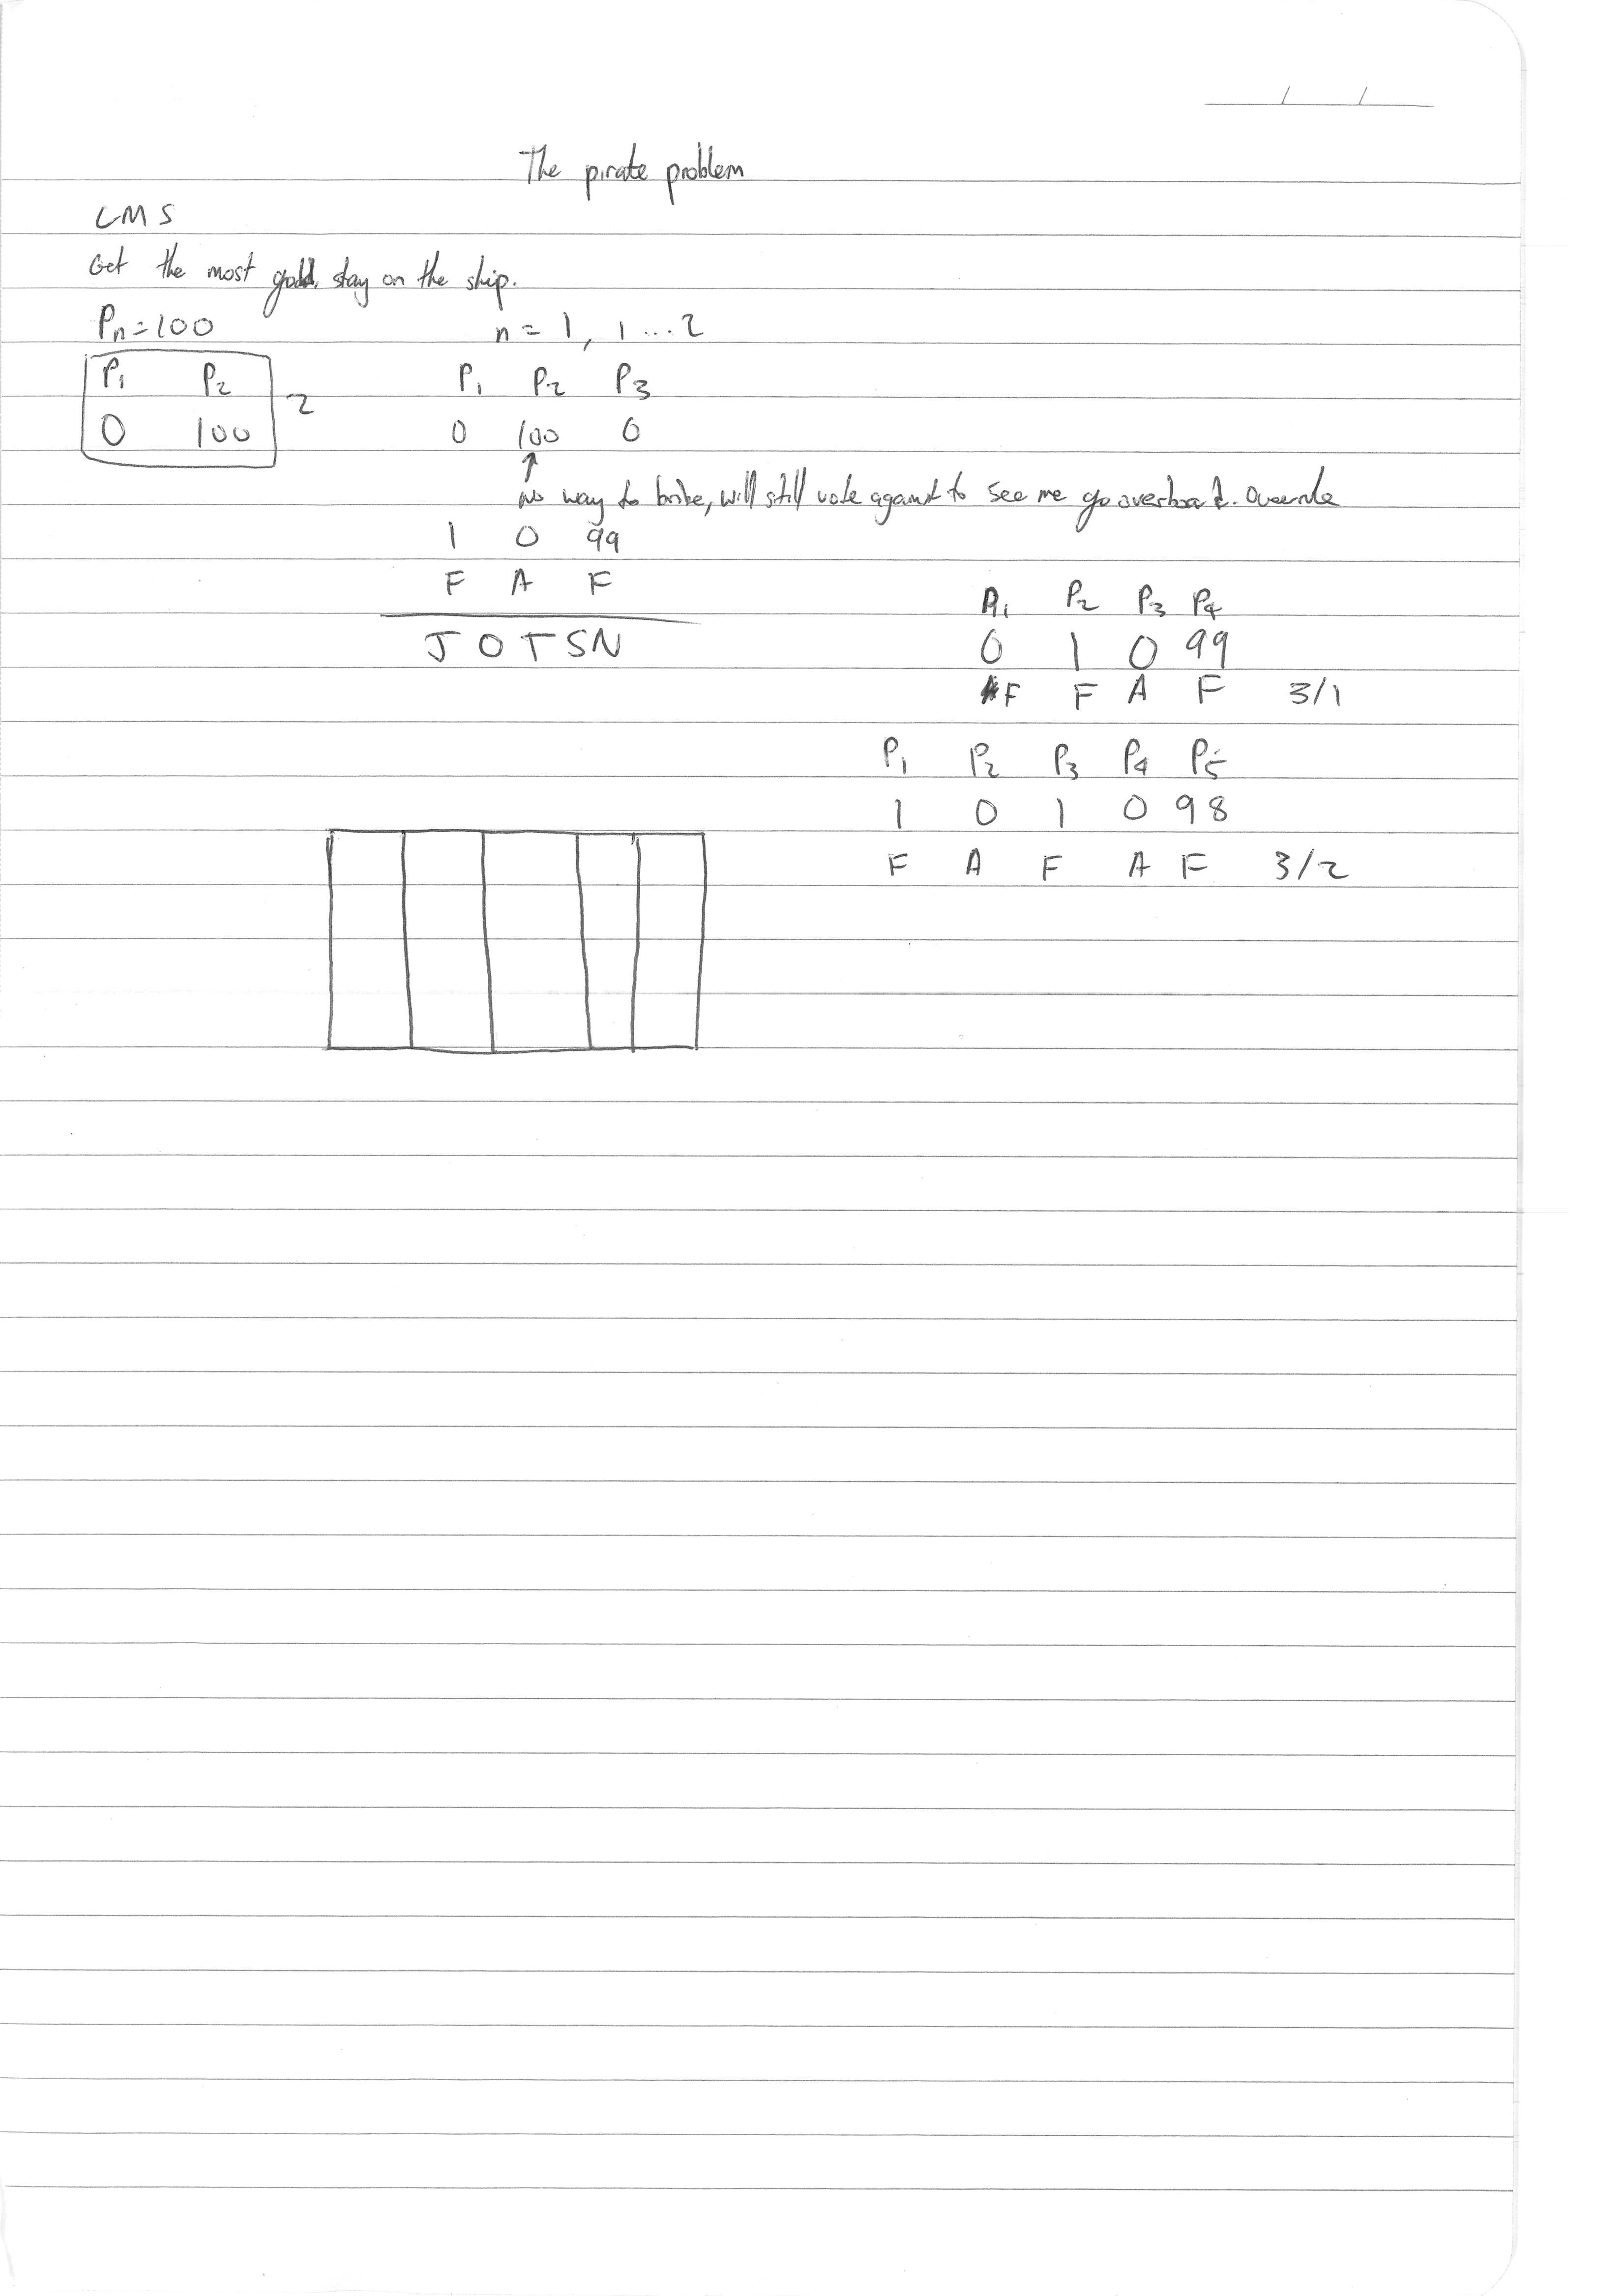 The pirate problem
LMS
Get the most gold, stay on the ship.
Pn=100 n = 1, 1 ... 2
P1 P2 2
0 100
P1 P2 P3
0 100 0
↑
no way to bribe, will still vote against to see me go overboard. Overrule
1 0 99
F A F
JOTSN
P1 P2 P3 P4
0 1 0 99
F F A F 3/1
P1 P2 P3 P4 P5
1 0 1 0 98
F A F A F 3/2